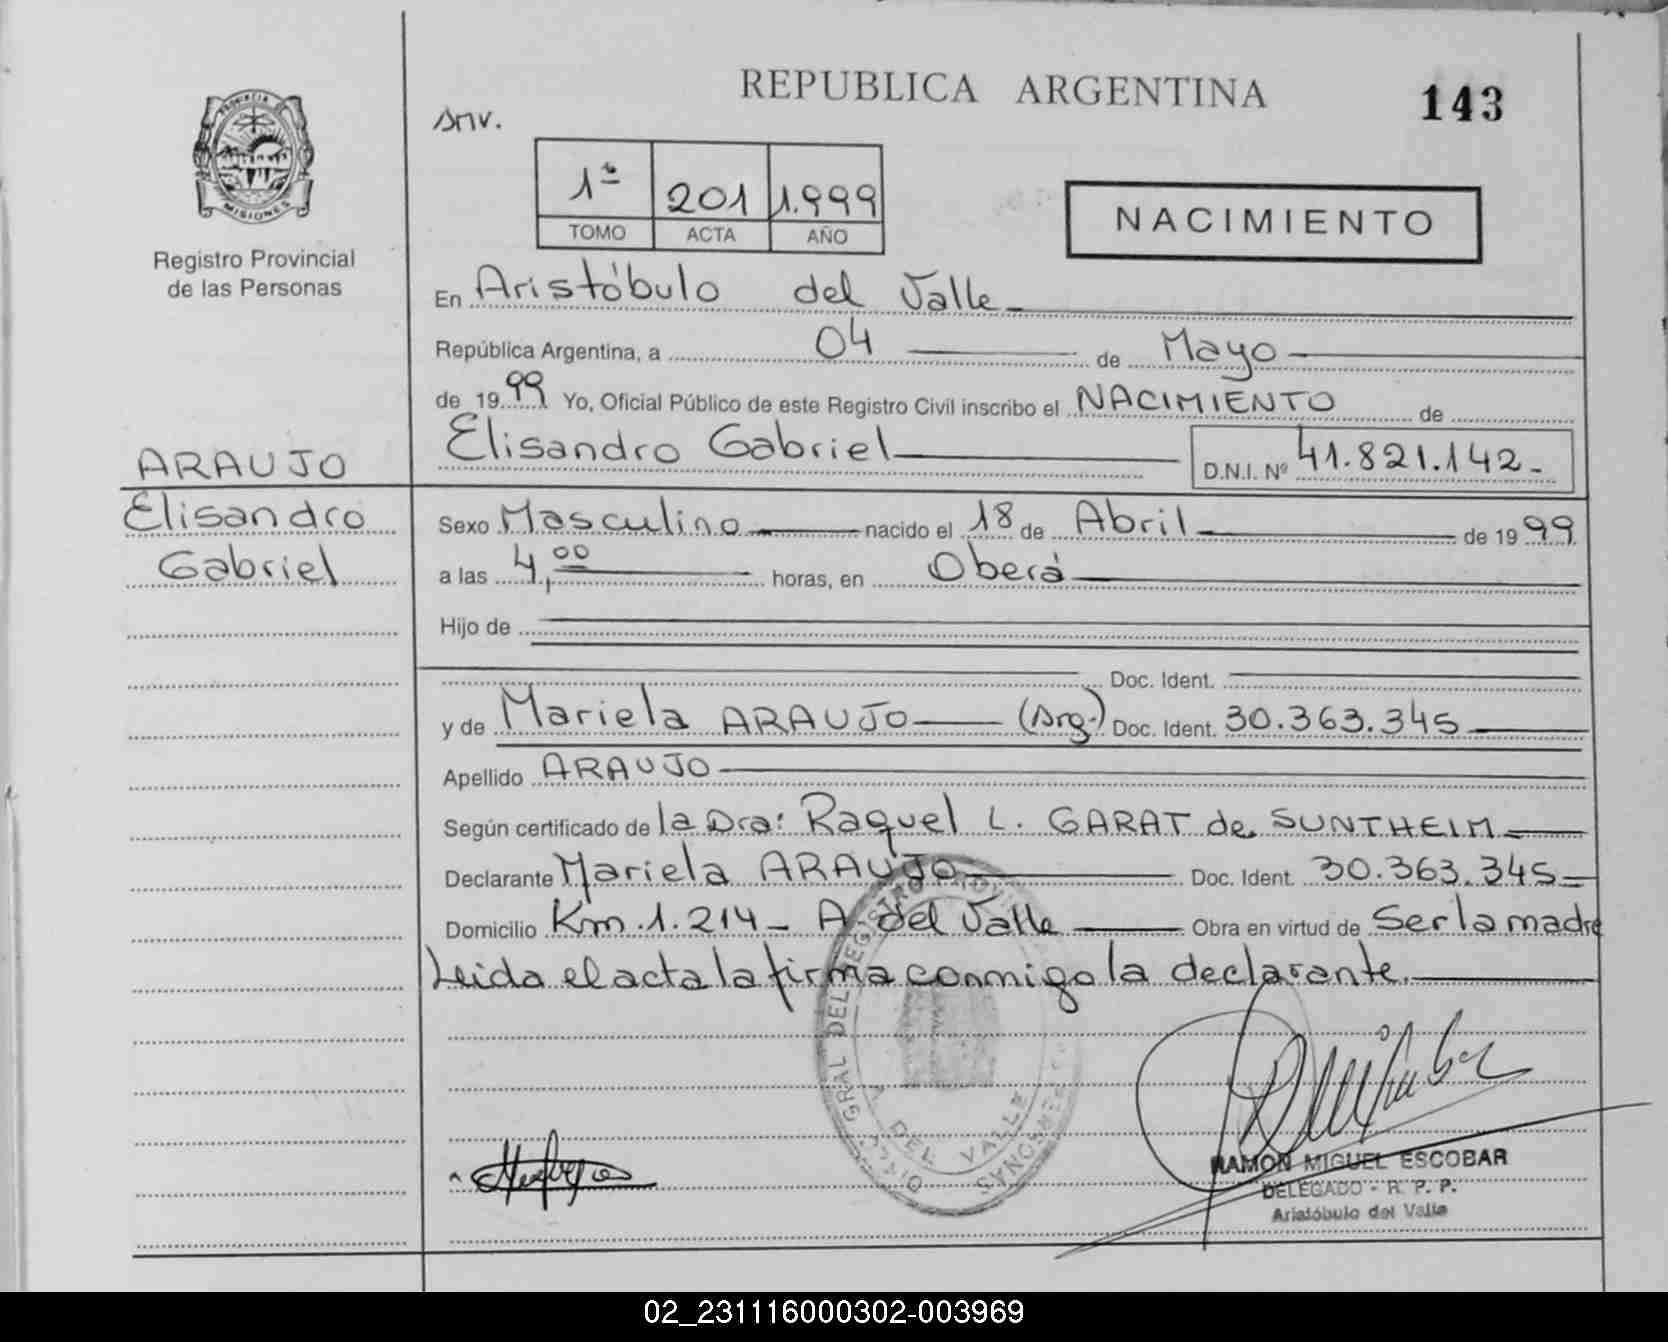 REPUBLICA ARGENTINA
143
PROVINCIA DE
MISIONES
Registro Provincial
de las Personas
1º 201 1.999
TOMO ACTA AÑO
NACIMIENTO
En Aristóbulo del Valle
República Argentina, a 04 de Mayo
de 1999 Yo, Oficial Público de este Registro Civil inscribo el NACIMIENTO de
Elisandro Gabriel D.N.I. Nº 41.821.142.-
ARAUJO
Elisandro
Gabriel
Sexo Masculino nacido el 18 de Abril de 1999
a las 4,00 horas, en Oberá
Hijo de
Doc. Ident.
y de Mariela ARAUJO (Arg.) Doc. Ident. 30.363.345
Apellido ARAUJO
Según certificado de la Dra: Raquel L. GARAT de SUNTHEIM
Declarante Mariela ARAUJO Doc. Ident. 30.363.345
Domicilio Km.1.214- A. del Valle Obra en virtud de Ser la madre
Leida el acta la firma conmigo la declarante.
GRAL DEL REGISTRO PROVIN
A DEL VALLE
RAMON MIGUEL ESCOBAR
DELEGADO - R. P. P.
Aristóbulo del Valle
02_231116000302-003969